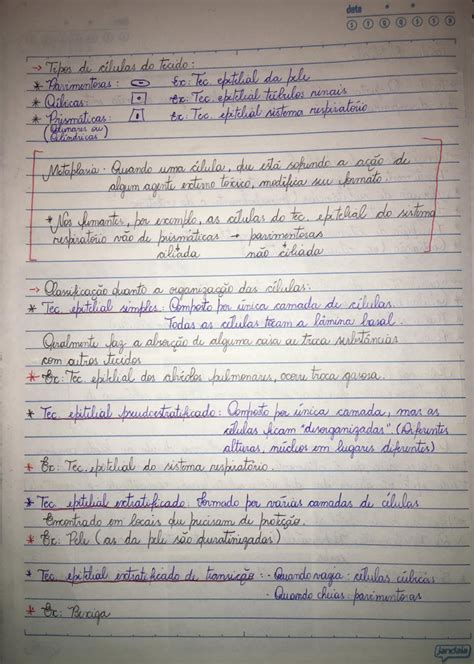 data
D S T Q Q S S
→ Tipos de células do tecido:
* Pavimentosas: Ex: Tec. epitelial da pele
* Cúbicas: Ex: Tec. epitelial túbulos renais
* Prismáticas: Ex: Tec. epitelial sistema respiratório
(Colunares ou
Cilíndricas)
Metaplasia - Quando uma célula, que está sofrendo a ação de
algum agente externo tóxico, modifica seu formato.
* Nos fumantes, por exemplo, as células do tec. epitelial do sistema
respiratório vão de prismáticas → pavimentosas
+ +
ciliada não ciliada
→ Classificação quanto a organização das células:
* Tec. epitelial simples: Composto por única camada de células.
Todas as células tocam a lâmina basal.
Geralmente faz a absorção de alguma coisa ou troca substâncias
com outros tecidos
* Ex: Tec. epitelial dos alvéolos pulmonares, ocorre troca gasosa.
* Tec. epitelial pseudoestratificado: Composto por única camada, mas as
células ficam "desorganizadas". (Diferentes
alturas, núcleos em lugares diferentes)
* Ex: Tec. epitelial do sistema respiratório.
* Tec. epitelial extratificado: Formado por várias camadas de células
Encontrado em locais que precisam de proteção.
* Ex: Pele (as da pele são queratinizadas)
* Tec. epitelial extratificado de transição: - Quando vazia: células cúbicas
- Quando cheias: pavimentosas
* Ex: Bexiga
jandaia